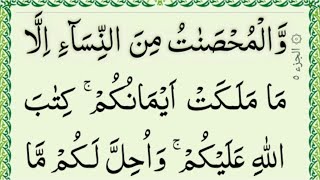 وَّالْمُحْصَنٰتُ مِنَ النِّسَآءِ اِلَّا
مَا مَلَكَتْ اَيْمَانُكُمْ ۚ كِتٰبَ
اللّٰهِ عَلَيْكُمْ ۚ وَاُحِلَّ لَكُمْ مَّا
الجزء ٥